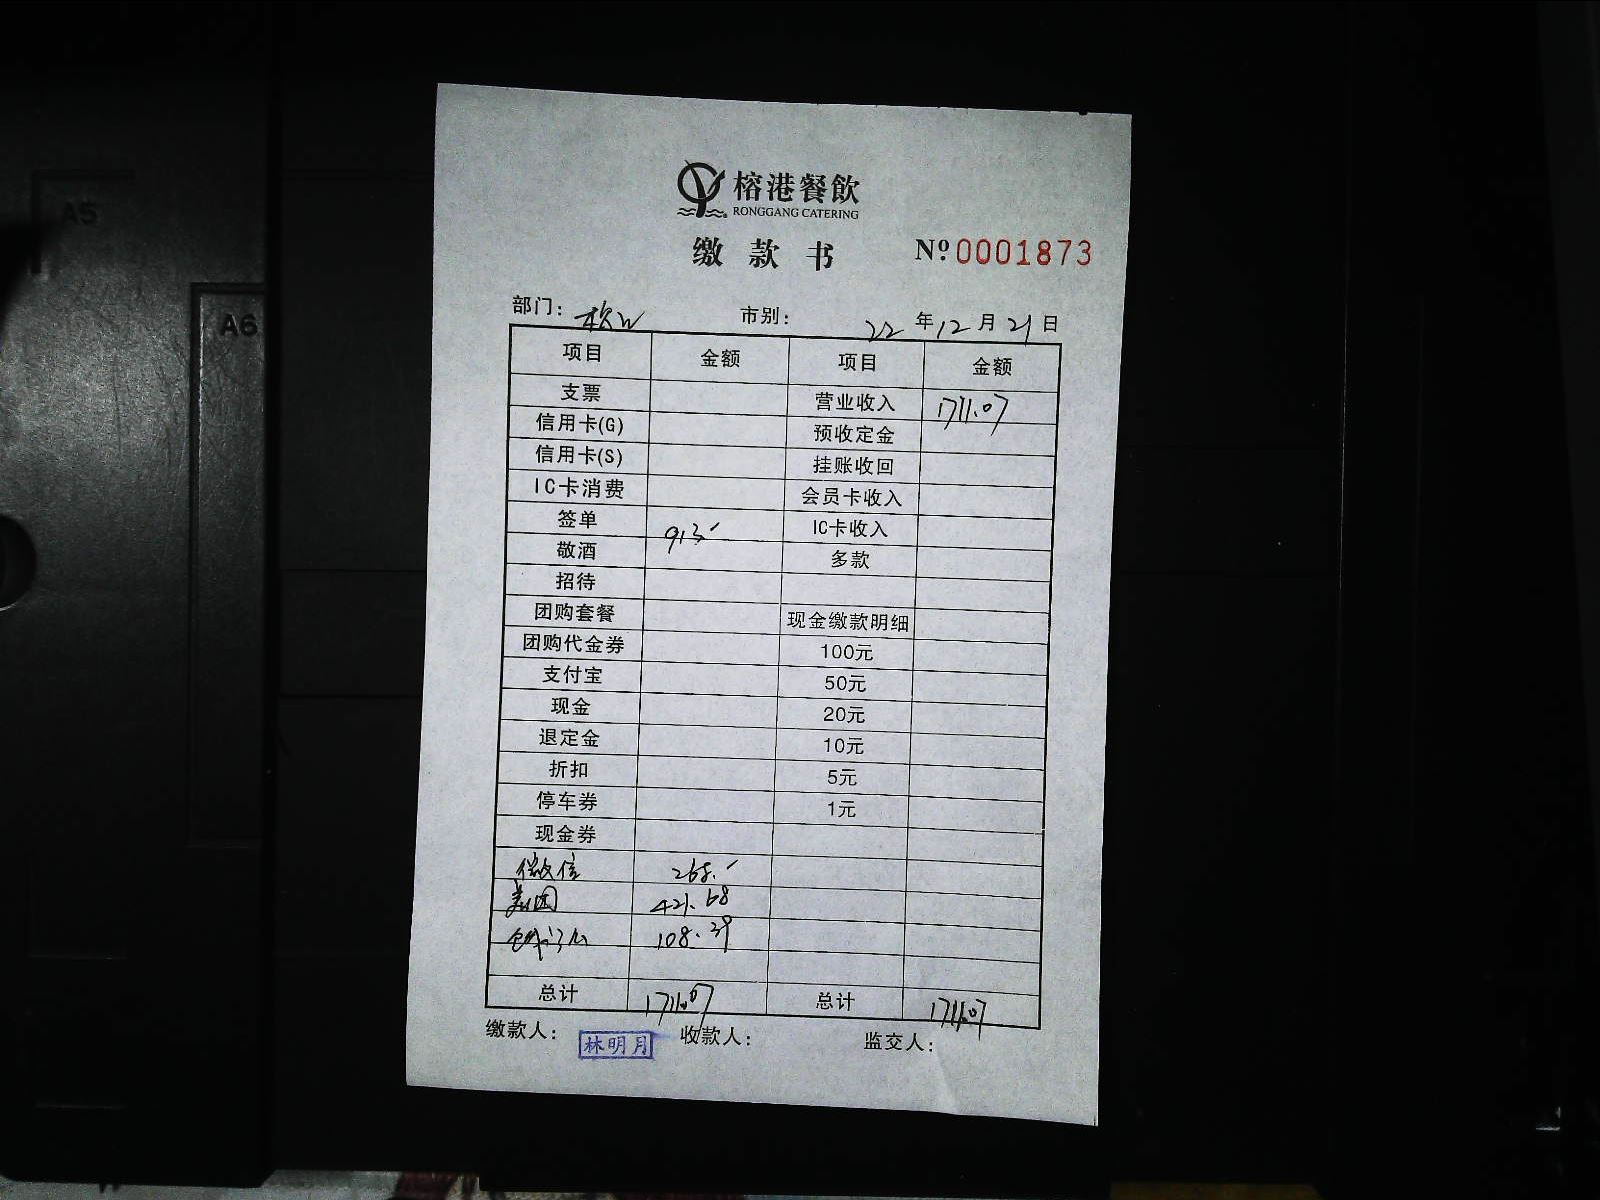 A5
A6
榕港餐飲
RONGGANG CATERING
缴款书 Nº 0001873
部门： 市别： 22年12月21日
项目 金额 项目 金额
支票 营业收入 1711.07
信用卡(G) 预收定金
信用卡(S) 挂账收回
IC卡消费 会员卡收入
签单 913 IC卡收入
敬酒 多款
招待
团购套餐 现金缴款明细
团购代金券 100元
支付宝 50元
现金 20元
退定金 10元
折扣 5元
停车券 1元
现金券
微信 268.
美团 421.68
饿了么 108.39
总计 1711.07 总计 1711.07
缴款人： 林明月 收款人： 监交人：